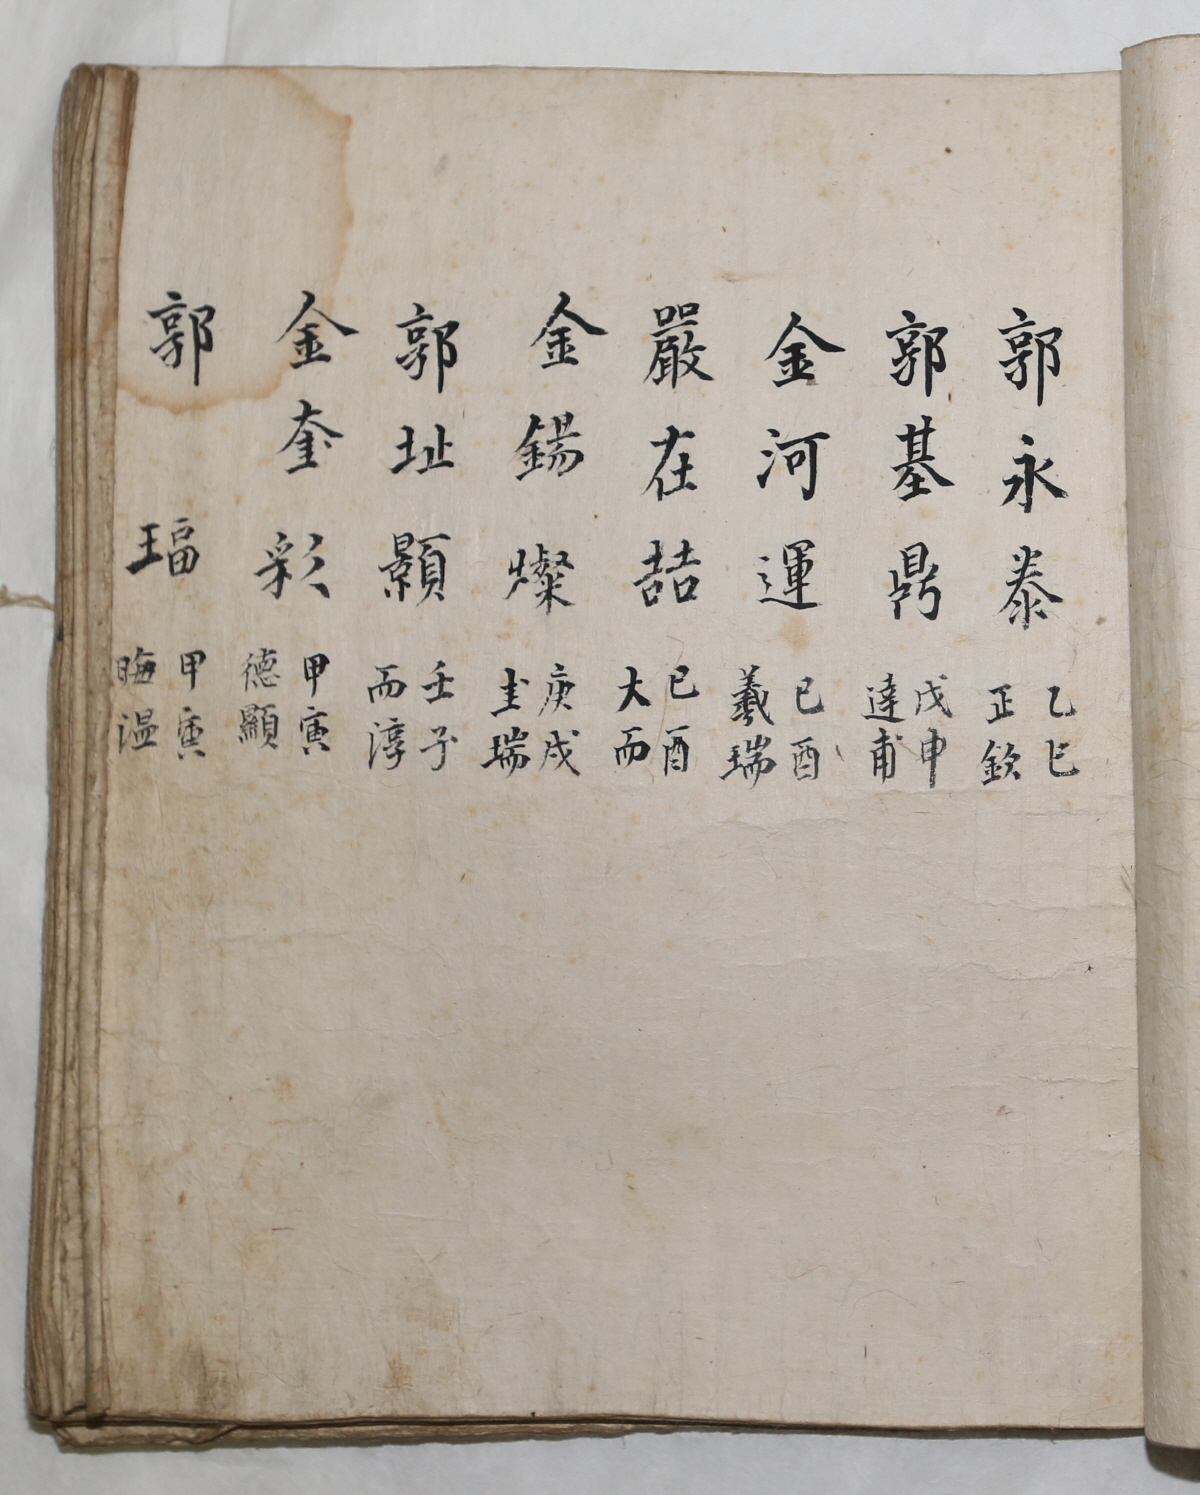 郭永泰 乙巳 正欽
郭基鼎 戊申 達甫
金河運 己酉 羲瑞
嚴在喆 己酉 大而
金鍚燦 庚戌 圭瑞
郭址顥 壬子 而淳
金奎彩 甲寅 德顯
郭 𤨒 甲寅 晦溫